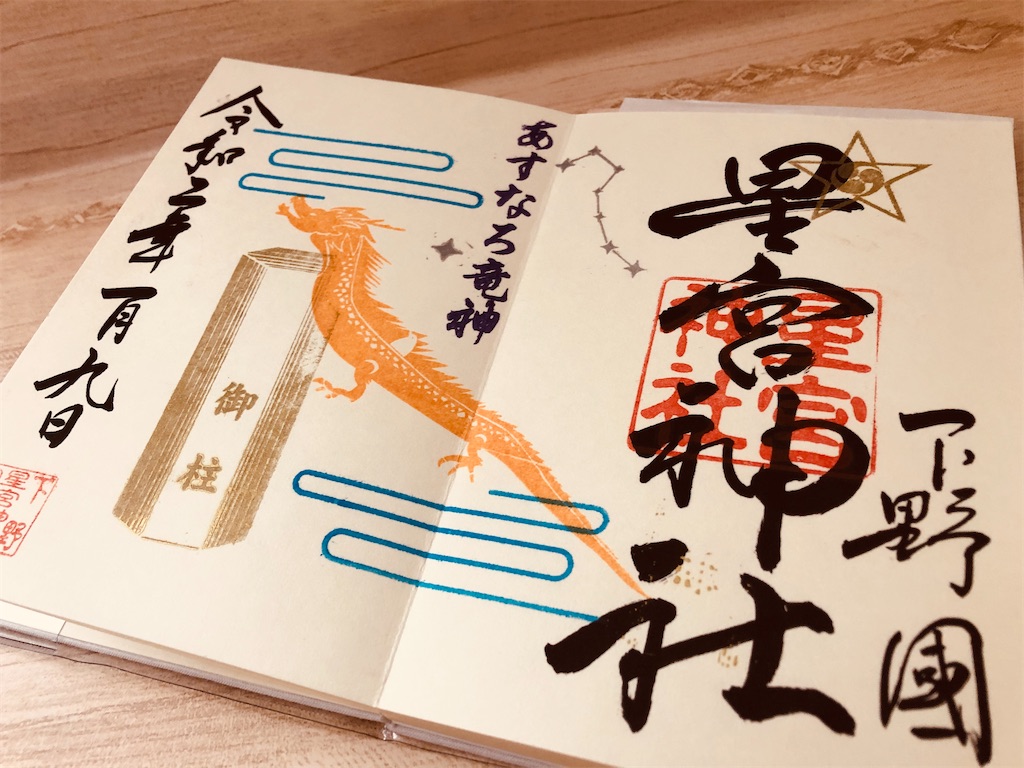 下野國
星宮神社
星宮
神社
あすなろ竜神
御柱
令和三年一月九日
下野
星宮神